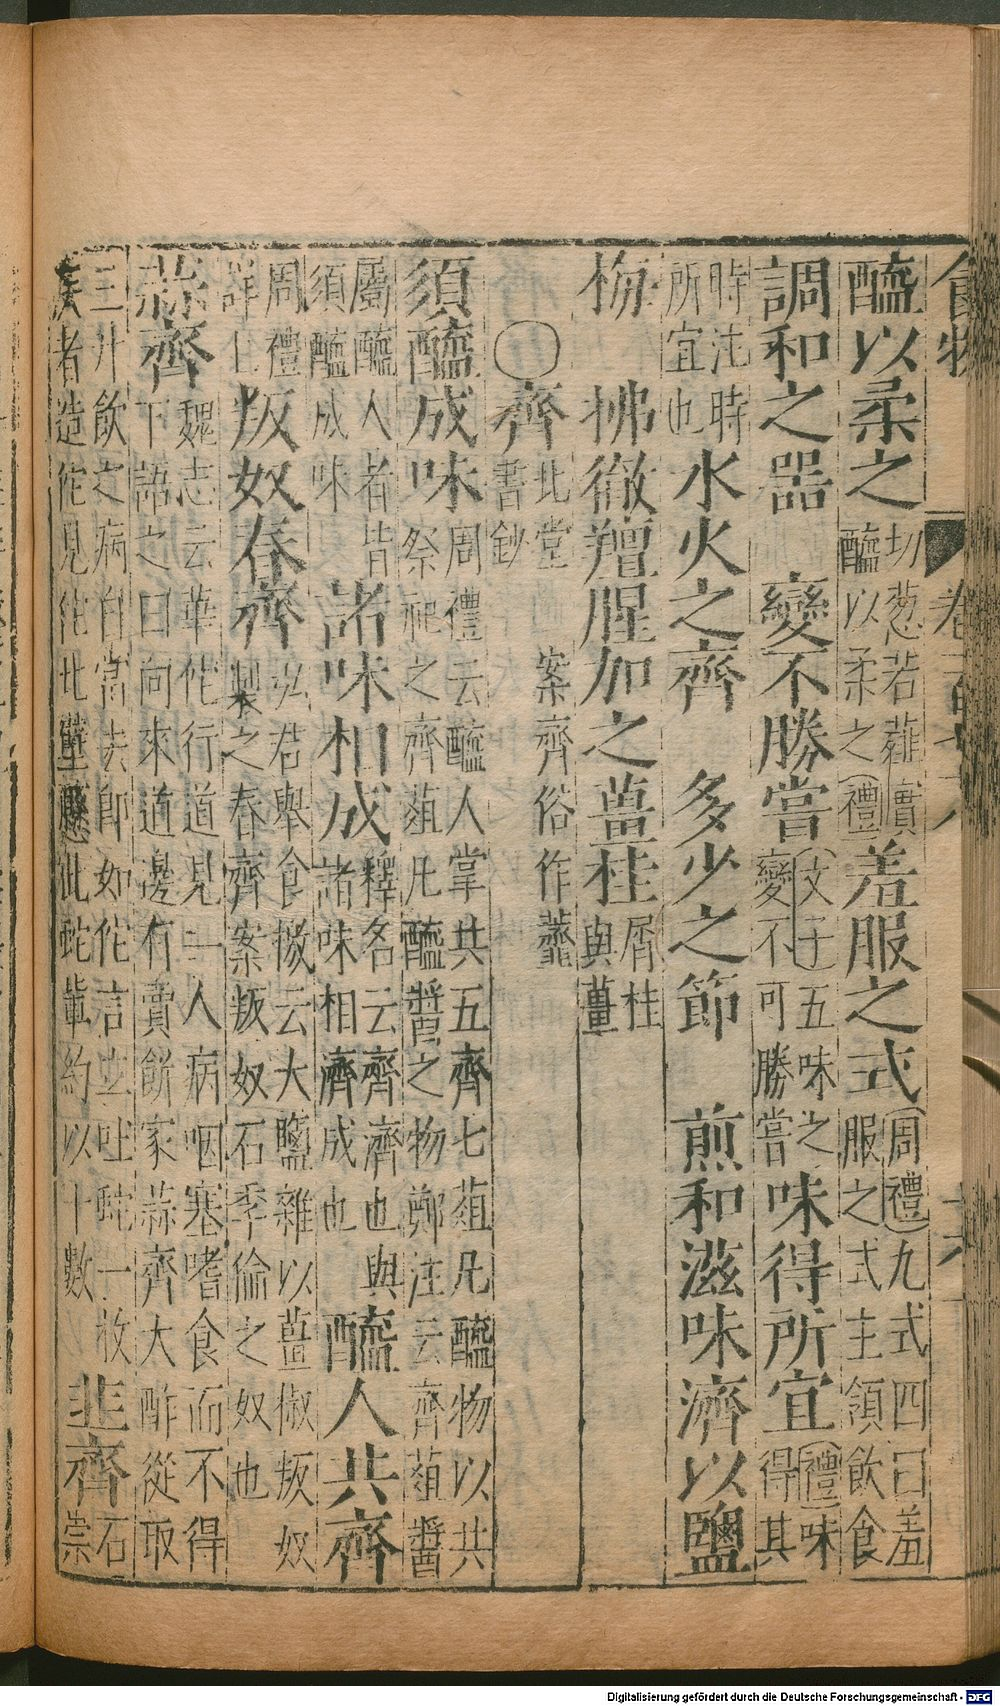 食物
卷
醯以柔之 切葱若薤實醯以柔之 禮 羞服之式 周禮九式四曰羞服之式主領飲食
調和之器 變不勝嘗 文子五味之變不可勝嘗 味得所宜 禮味得其
時注時所宜也 水火之齊 多少之節 煎和滋味濟以鹽
梅 拂徹羶腥加之薑桂 屑桂與薑
○齊 北堂書鈔 案齊俗作虀
須醯成味 周禮云醯人掌共五齊七菹凡醯物以共祭祀之齊菹凡醯醬之物鄭注云齊菹醬
屬醯人者皆須醯成味 諸味相成 釋名云齊濟也與諸味相濟成也 醯人共齊
周禮詳上 叛奴春齊 弘君舉食檄云大鹽雜以薑椒叛奴製之春齊案叛奴石季倫之奴也
蒜齊 魏志云華佗行道見一人病咽塞嗜食而不得下語之曰向來道邊有賣餅家蒜齊大酢從取
三升飲之病自當去即如佗言立吐蛇一枚 疾者造佗見佗北壁懸此蛇輩約以十數 韭齊 石崇
Digitalisierung gefördert durch die Deutsche Forschungsgemeinschaft - DFG